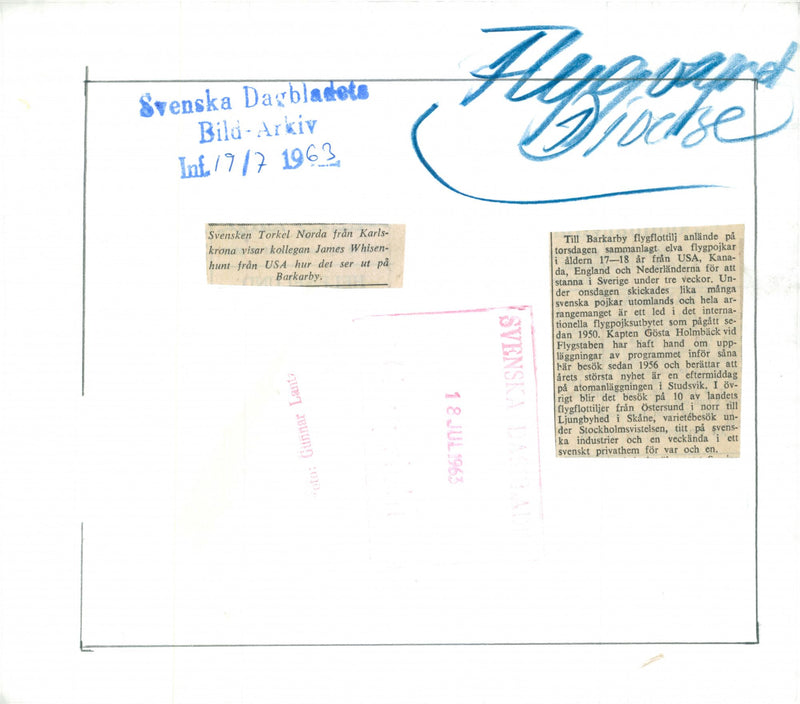 Flygvapnet
Diverse
Svenska Dagbladets
Bild-Arkiv
Inf. 19/7 1963
Svensken Torkel Norda från Karls-
krona visar kollegan James Whisen-
hunt från USA hur det ser ut på
Barkarby.
Till Barkarby flygflottilj anlände på
torsdagen sammanlagt elva flygpojkar
i åldern 17—18 år från USA, Kana-
da, England och Nederländerna för att
stanna i Sverige under tre veckor. Un-
der onsdagen skickades lika många
svenska pojkar utomlands och hela ar-
rangemanget är ett led i det interna-
tionella flygpojksutbytet som pågått se-
dan 1950. Kapten Gösta Holmbäck vid
Flygstaben har haft hand om upp-
läggningar av programmet inför såna
här besök sedan 1956 och berättar att
årets största nyhet är en eftermiddag
på atomanläggningen i Studsvik. I öv-
rigt blir det besök på 10 av landets
flygflottiljer från Östersund i norr till
Ljungbyhed i Skåne, varietébesök un-
der Stockholmsvistelsen, titt på svens-
ka industrier och en veckända i ett
svenskt privathem för var och en.
SVENSKA DAGBLADET
18 JUL 1963
Foto: Gunnar Lantz